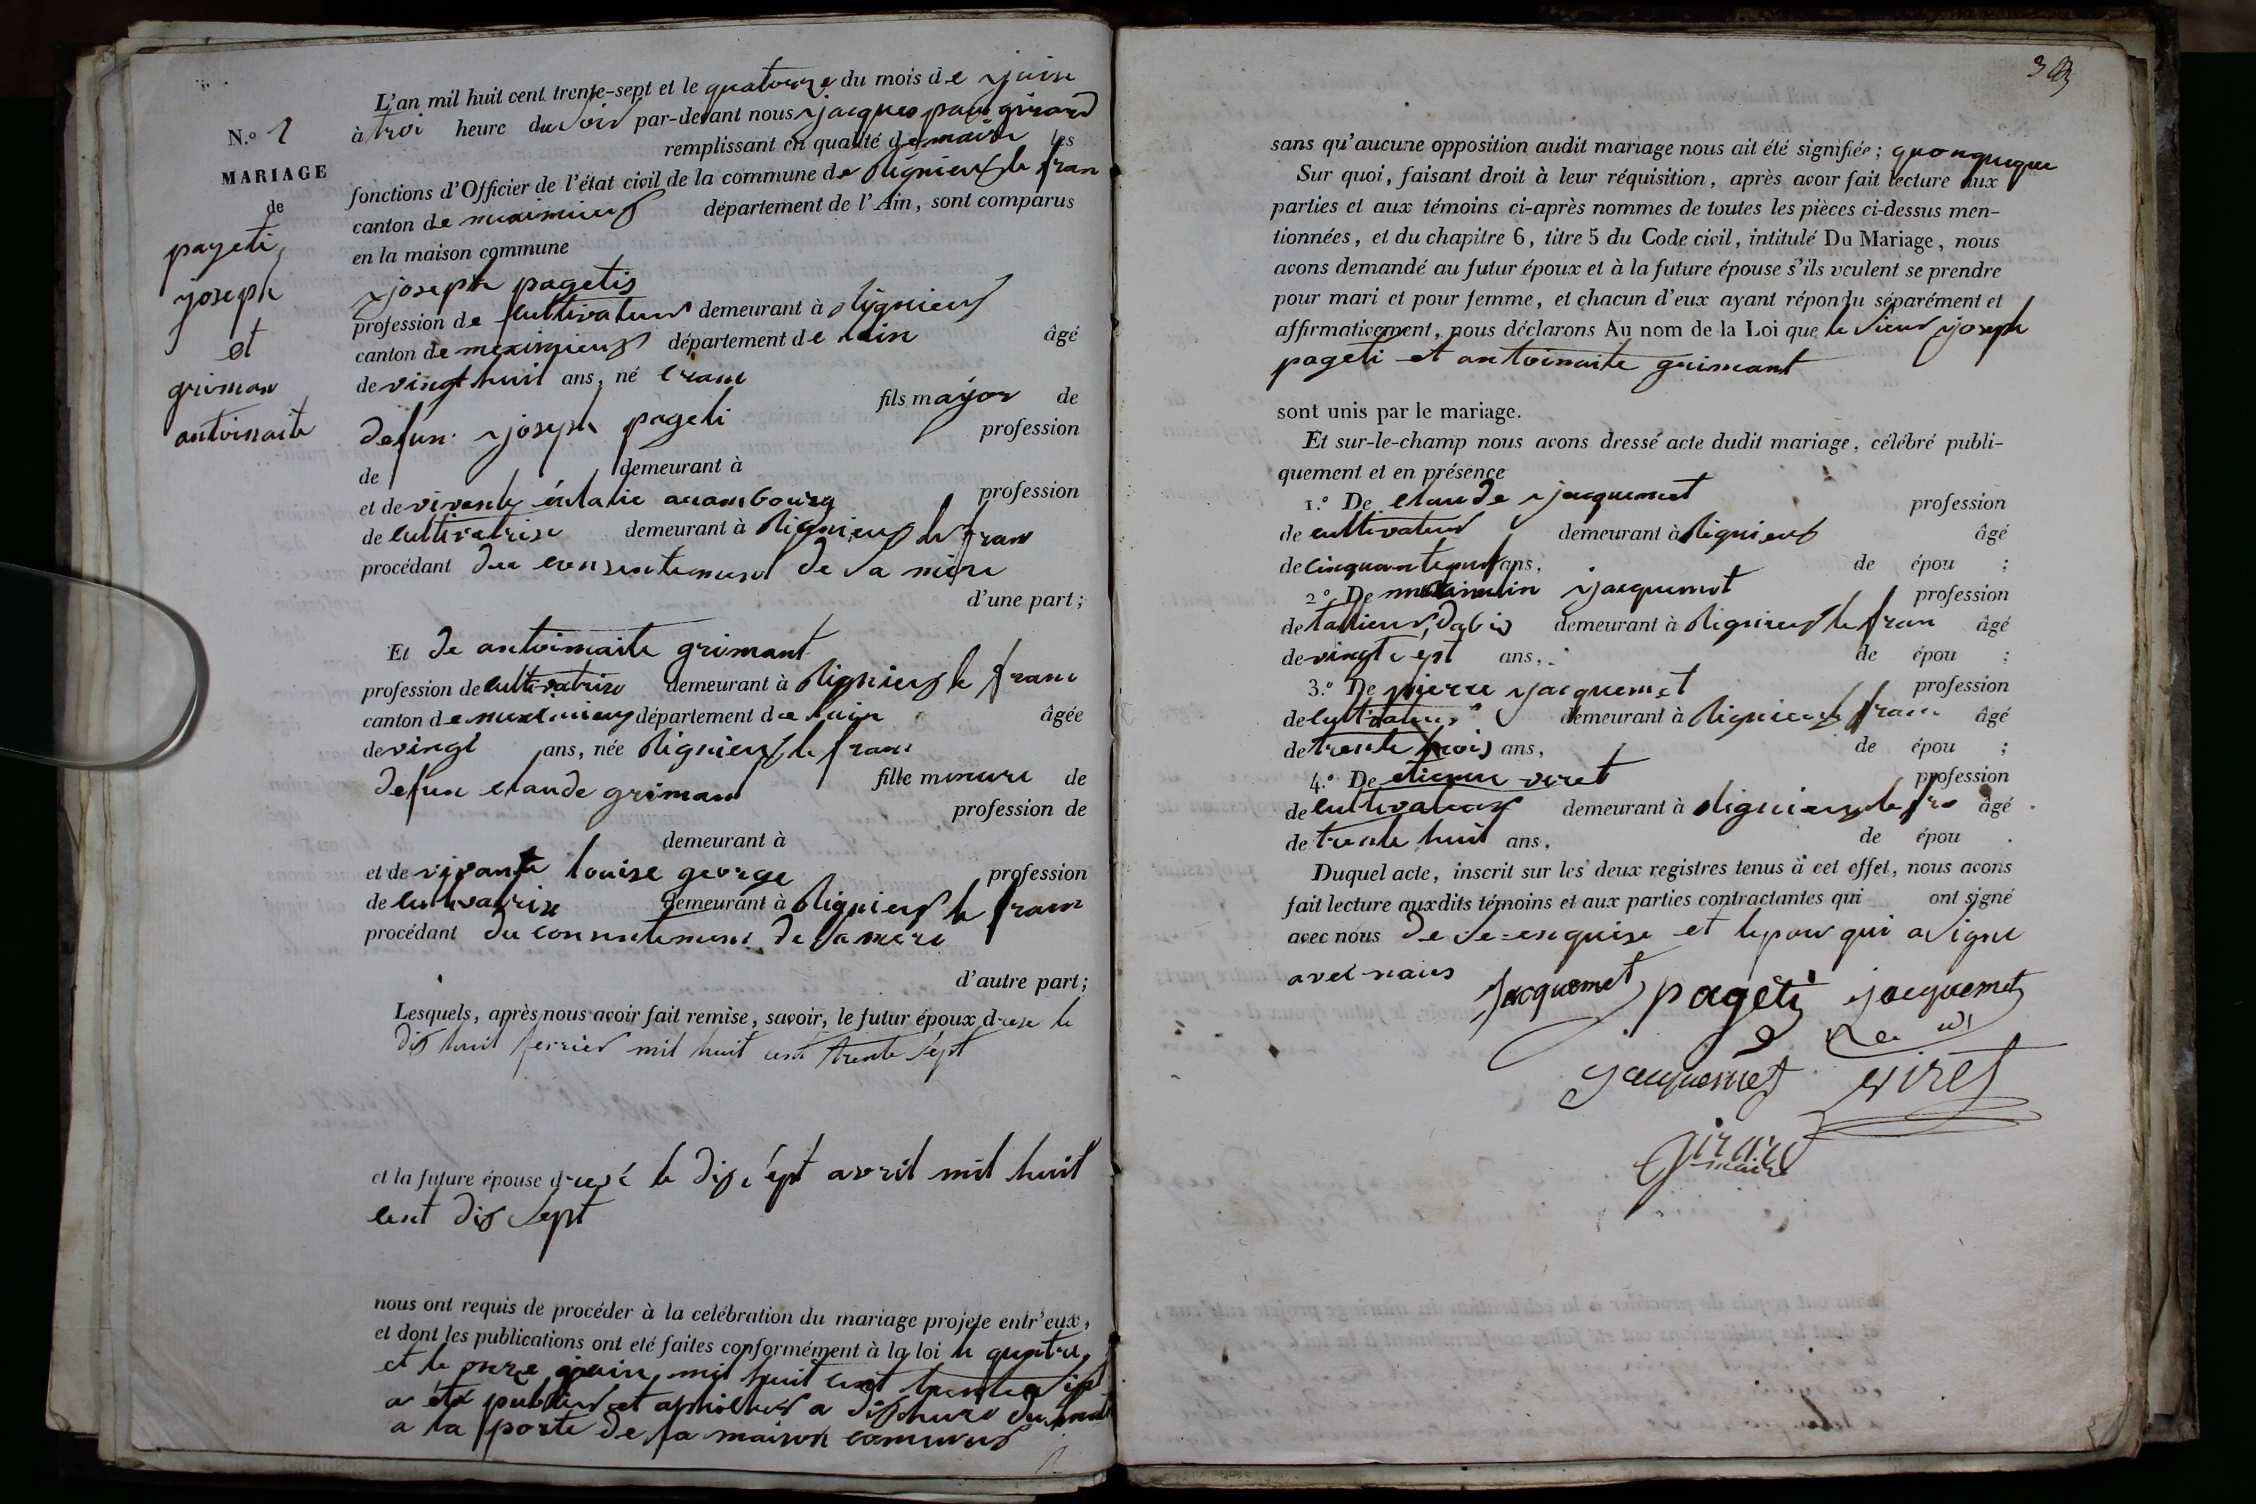 N.o 2
MARIAGE
de
pageti
joseph
et
griman
antoinaite
L'an mil huit cent trente-sept et le quatorze du mois de juin
à troi heure du soir par-devant nous jacques paul girard
remplissant en qualité de maire les
fonctions d'Officier de l'état civil de la commune de rignieux le fran
canton de meximieux département de l'Ain, sont comparus
en la maison commune
joseph pagetis
profession de cultivateur demeurant à rignieux
canton de meximieux département de lain âgé
de vingt huit ans, né crans
fils major de
defun joseph pageti
profession
de demeurant à
et de vivente éulalie profession
de cultivatrise demeurant à rignieux le fran
procédant du consentement de sa mere
d'une part;
Et de antoinaite grimant
profession de cultivatrise demeurant à rignieux le franc
canton de meximieux département de lain âgée
de vingt ans, née rignieux le franc
defun claude griman fille mineure de
profession de
demeurant à
et de vivante louise george profession
de cultivatrise demeurant à rignieux le franc
procédant du consentement de sa mere
d'autre part;
Lesquels, après nous avoir fait remise, savoir, le futur époux drese le
dis huit fevrier mil huit cent trente sept
et la future épouse dresé le dis cept avril mil huit
cent dis sept
nous ont requis de procéder à la celébration du mariage projete entr'eux,
et dont les publications ont eté faites conformément à la loi le quatre
et le onze juin mil huit cent trente sept
a été publier et afficher a dis heure du mat
a la porte de la maison commune
sans qu'aucune opposition audit mariage nous ait été signifiée;
Sur quoi, faisant droit à leur réquisition, après avoir fait lecture aux
parties et aux témoins ci-après nommes de toutes les pièces ci-dessus men-
tionnées, et du chapitre 6, titre 5 du Code civil, intitulé Du Mariage, nous
avons demandé au futur époux et à la future épouse s'ils veulent se prendre
pour mari et pour femme, et chacun d'eux ayant répondu séparément et
affirmativement, nous déclarons Au nom de la Loi que le sieur joseph
pageti et antoinaite grimant
sont unis par le mariage.
Et sur-le-champ nous avons dressé acte dudit mariage, célébré publi-
quement et en présence
1.o De claude jacquemet profession
de cultivateur demeurant à rignieux âgé
de cinquante neuf ans, de épou ;
2.o De jacquemet profession
de tallieur dabis demeurant à rignieux le fran âgé
de vingt cept ans, de épou ;
3.o De pierre jacquemet profession
de cultivateur demeurant à rignieux fran âgé
de trente trois ans, de épou ;
4.o De etienne viret profession
de cultivateur demeurant à rignieux le fra âgé
de trente huit ans, de épou .
Duquel acte, inscrit sur les deux registres tenus à cet effet, nous avons
fait lecture auxdits témoins et aux parties contractantes qui ont signé
avec nous de ce enquise et lepour qui a signe
avec nous
Jacquemet pageti jacquemet
jacquemet viret
girard
maire